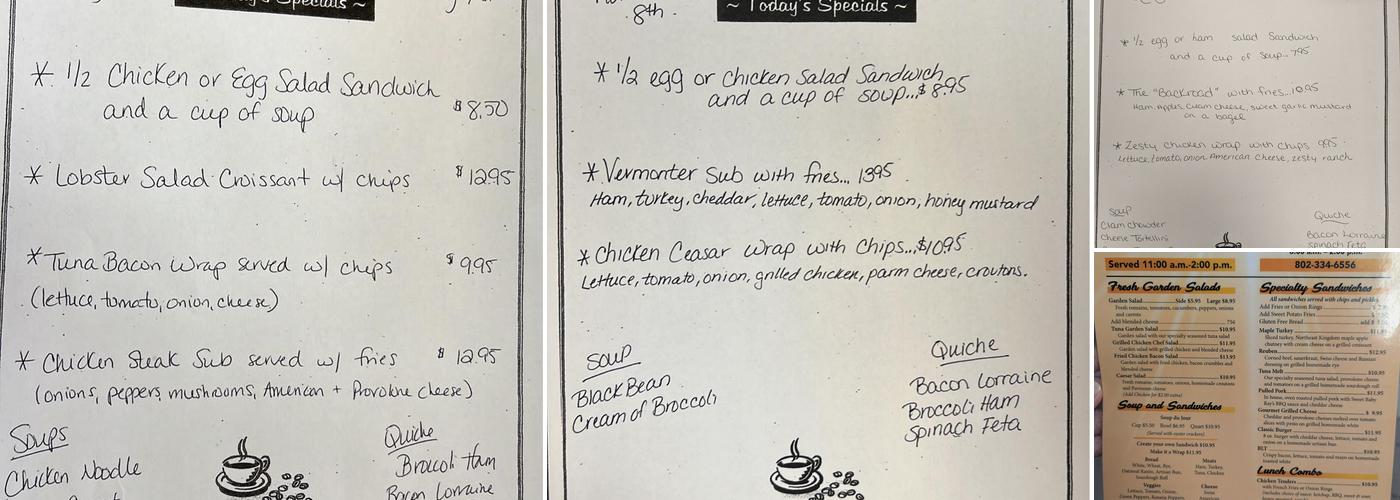 Specials ~
* 1/2 Chicken or Egg Salad Sandwich
and a cup of soup $8.50
* Lobster Salad Croissant w/ chips $12.95
* Tuna Bacon Wrap served w/ chips $9.95
(lettuce, tomato, onion, cheese)
* Chicken Steak Sub served w/ fries $12.95
(onions, peppers, mushrooms, American + Provolone Cheese)
Soups
Chicken Noodle
Quiche
Broccoli Ham
Bacon Lorraine
8th.
~ Today's Specials ~
* 1/2 egg or chicken Salad Sandwich
and a cup of soup...$8.95
* Vermonter Sub with fries... 1395
Ham, turkey, cheddar, lettuce, tomato, onion, honey mustard
* Chicken Ceasar Wrap with Chips...$10.95
Lettuce, tomato, onion, grilled chicken, parm cheese, croutons.
Soup
Black Bean
Cream of Broccoli
Quiche
Bacon Lorraine
Broccoli Ham
Spinach Feta
* 1/2 egg or ham salad Sandwich
and a cup of soup...795
* The "Backroad" with fries...10.95
Ham, Apples, Cream cheese, sweet garlic mustard
on a bagel
* Zesty Chicken wrap with chips 995
Lettuce, tomato, onion, American Cheese, zesty ranch
Soup
Clam Chowder
Cheese Tortellini
Quiche
Bacon Lorraine
Spinach Feta
Served 11:00 a.m.-2:00 p.m.
Fresh Garden Salads
Garden Salad Side $5.95 Large $8.95
Fresh romaine, tomatoes, cucumbers, peppers, onions
and carrots
Add blended cheese 75¢
Tuna Garden Salad $10.95
Garden salad with our specialty seasoned tuna salad
Grilled Chicken Chef Salad $11.95
Garden salad with grilled chicken and blended cheese
Fried Chicken Bacon Salad $13.95
Garden salad with fried chicken, bacon crumbles and
blended cheese
Caesar Salad $10.95
Fresh romaine, tomatoes, onions, homemade croutons
and Parmesan cheese
Soup and Sandwiches
Soup du Jour
Cup $5.50 Bowl $6.95 Quart $10.95
(Served with oyster crackers)
Create your own Sandwich $10.95
Make it a Wrap $11.95
Bread
White, Wheat, Rye,
Sourdough Roll
Meats
Ham, Turkey,
Tuna, Chicken
Veggies
Lettuce, Tomato, Onion,
Cheese
Swiss
802-334-6556
Specialty Sandwiches
All sandwiches served with chips and pickle
Add Fries or Onion Rings
Add Sweet Potato Fries
Gluten Free Bread
Maple Turkey
Sliced turkey, Northeast Kingdom maple apple
chutney with cream cheese on a grilled croissant
Reuben $12.95
Corned beef, sauerkraut, Swiss cheese and Russian
dressing on grilled homemade rye
Tuna Melt $10.95
Our specialty seasoned tuna salad, provolone cheese
and tomatoes on a grilled homemade sourdough roll
Pulled Pork $11.95
In house, oven roasted pulled pork with Sweet Baby
Ray's BBQ sauce and cheddar cheese
Gourmet Grilled Cheese $ 9.95
Cheddar and provolone cheeses melted over tomato
slices with pesto on grilled homemade white
Classic Burger $11.95
8 oz. burger with cheddar cheese, lettuce, tomato and
onion on a homemade artisan bun
BLT $10.95
Crispy bacon, lettuce, tomato and mayo on homemade
toasted white
Lunch Combo
Chicken Tenders $10.95
with French Fries or Onion Rings